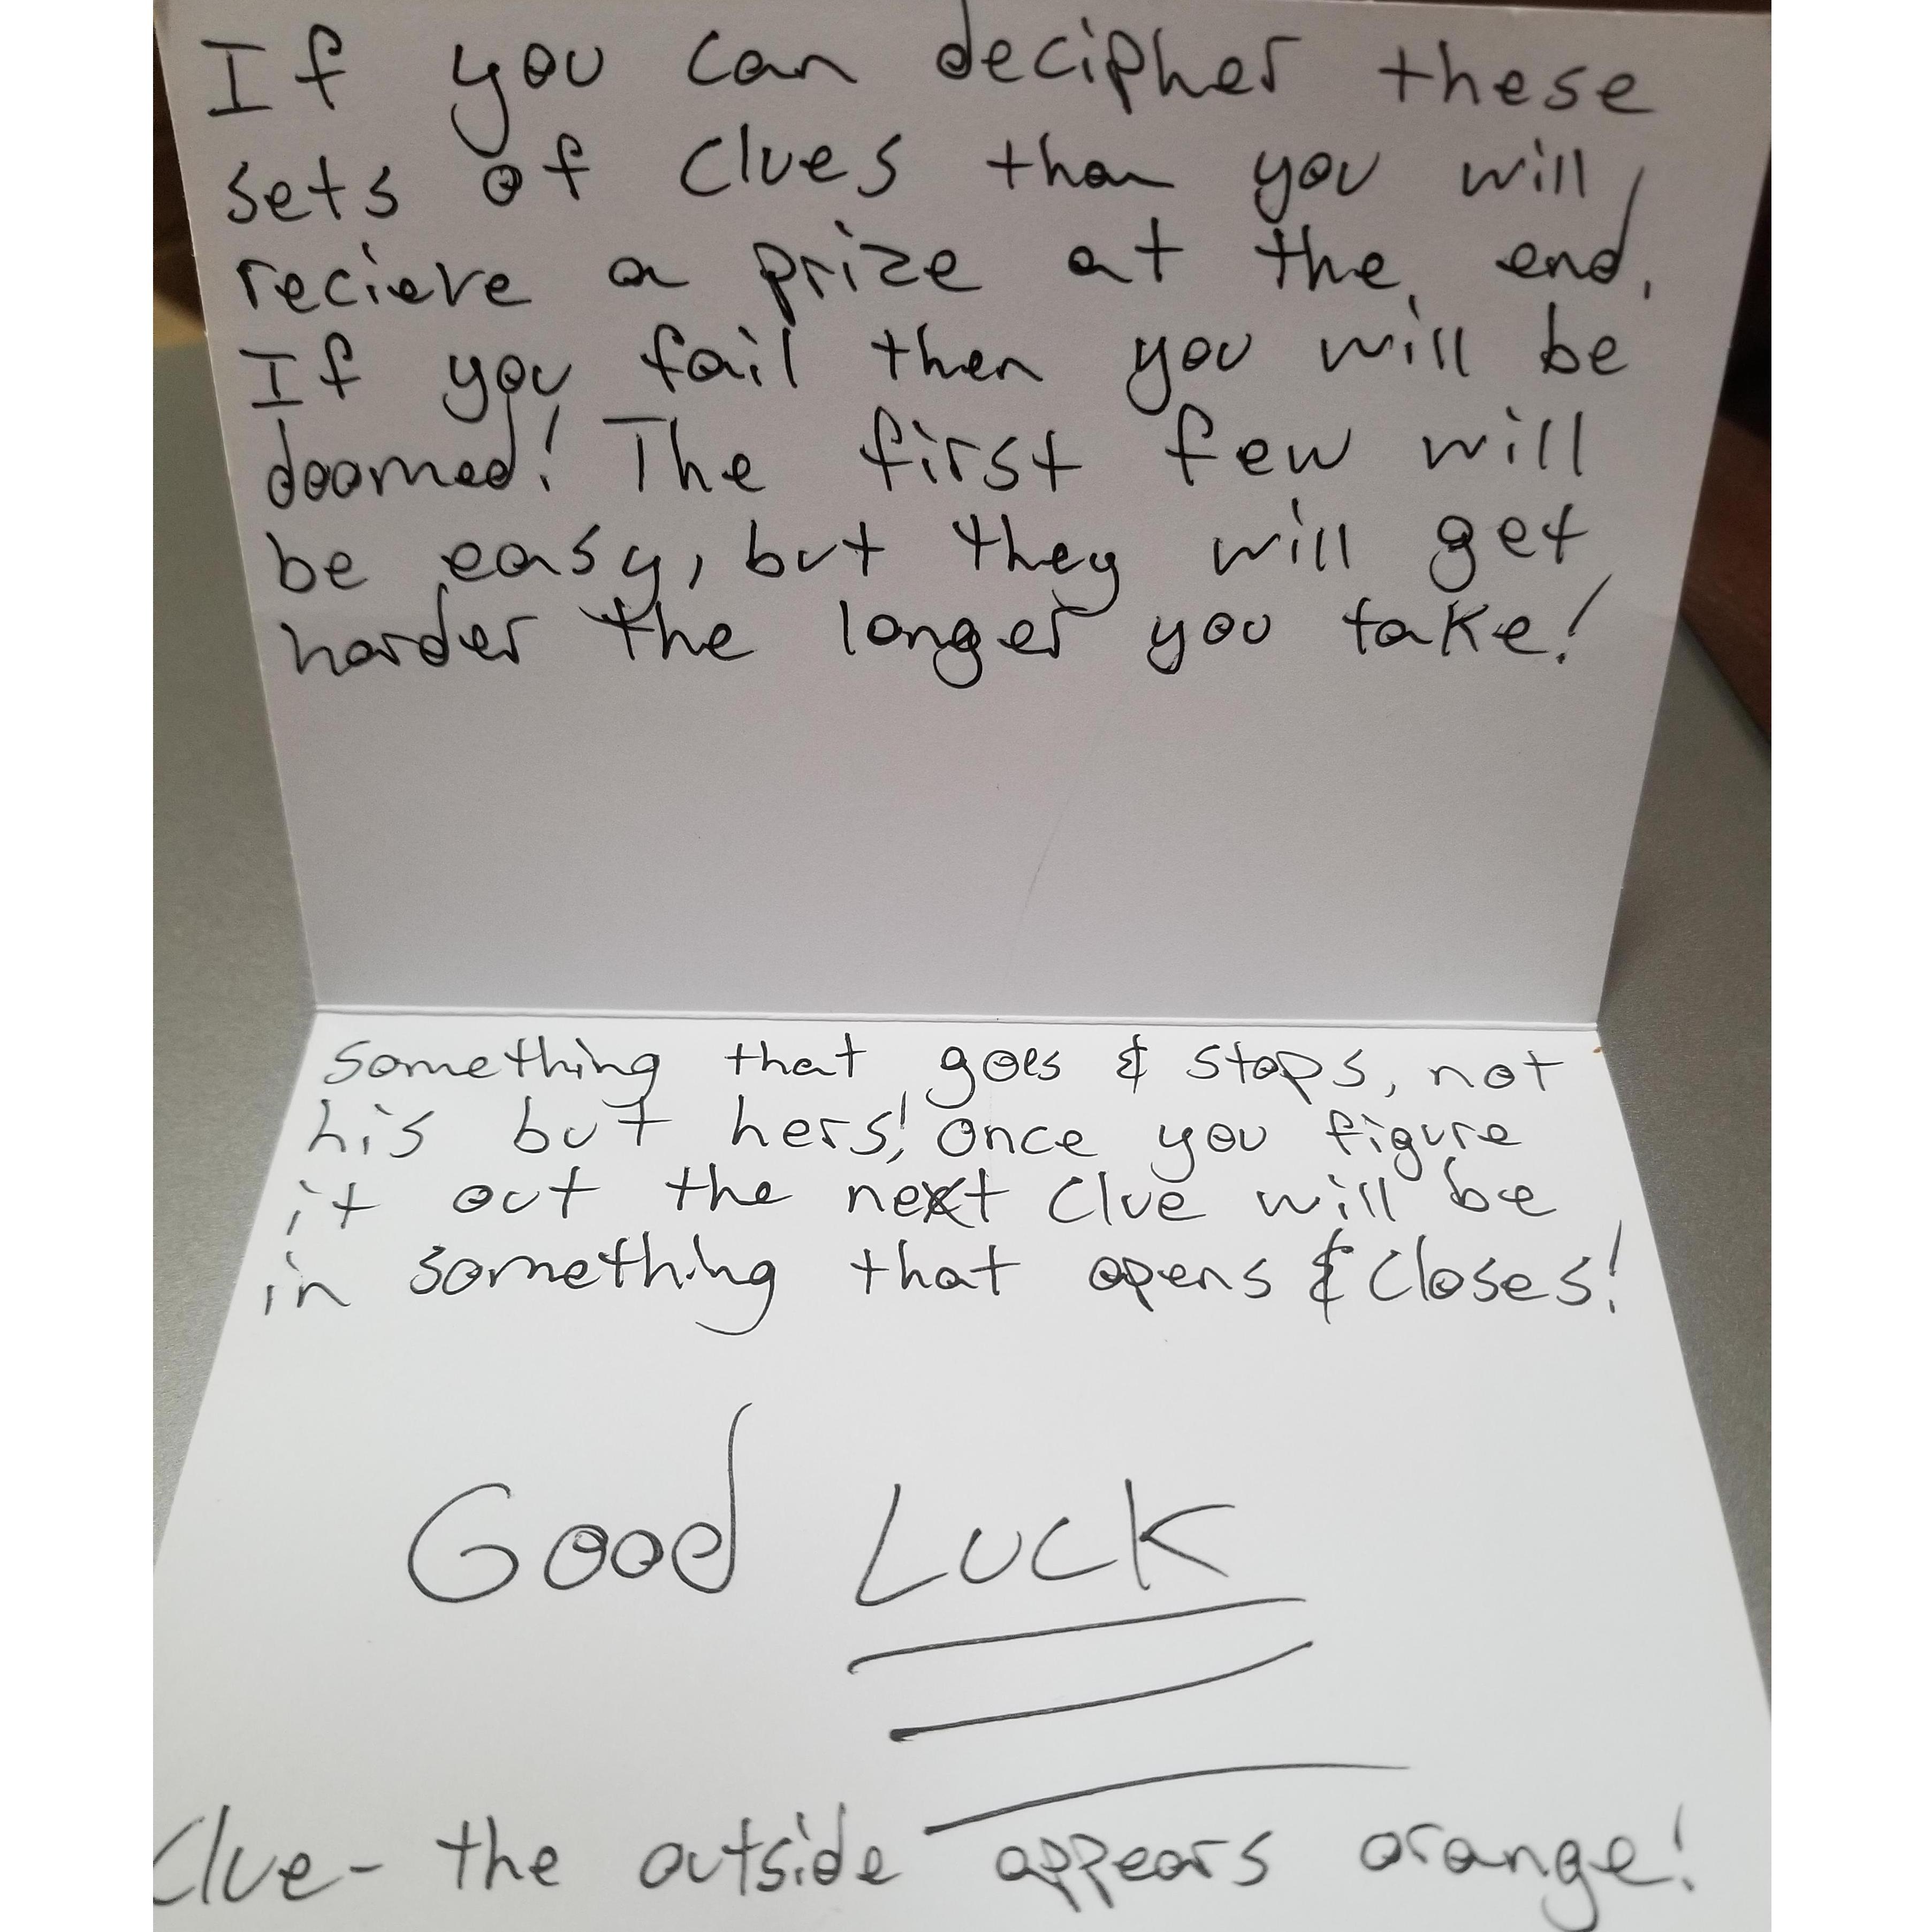 If you can decipher these
sets of clues than you will
recieve a prize at the end.
If you fail then you will be
doomed! The first few will
be easy, but they will get
harder the longer you take!
Something that goes & stops, not
his but hers! Once you figure
it out the next clue will be
in something that opens & closes!
Good Luck
Clue- the outside appears orange!